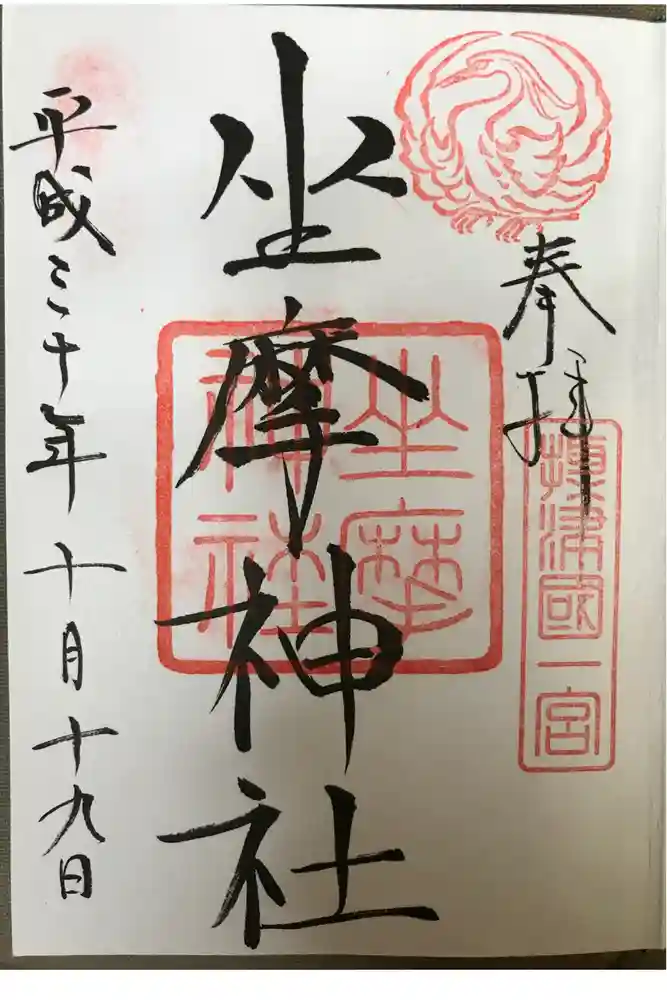 奉拝
攝津國一宮
坐摩神社
坐摩神社
平成三十年十月十九日